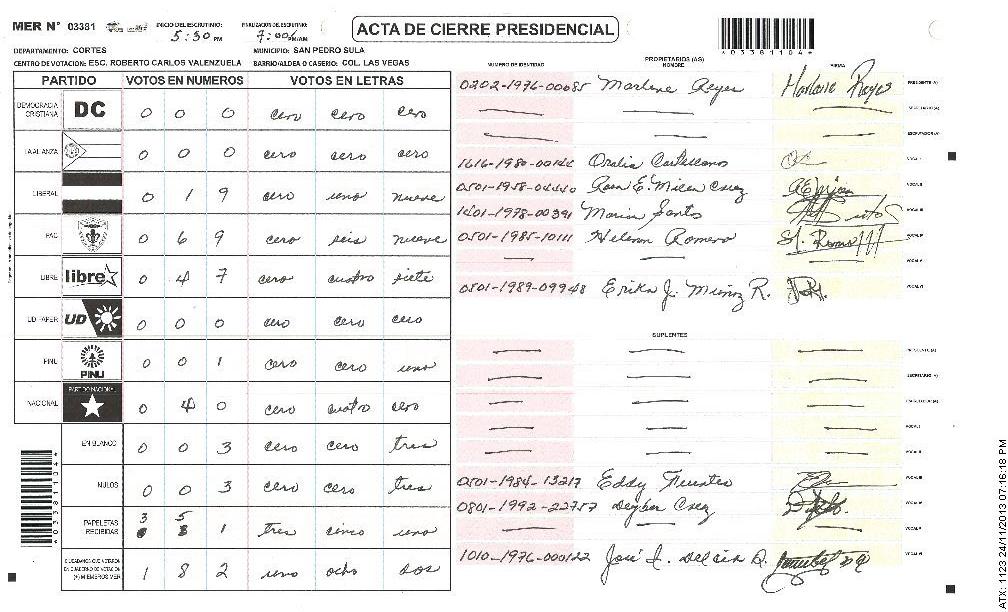 MER N° 03381
INICIO DEL ESCRUTINIO: 5:30 PM
FINALIZACION DEL ESCRUTINIO: 7:00 PM/AM
ACTA DE CIERRE PRESIDENCIAL
03381104
DEPARTAMENTO: CORTES MUNICIPIO: SAN PEDRO SULA
CENTRO DE VOTACIÓN: ESC. ROBERTO CARLOS VALENZUELA BARRIO/ALDEA O CASERIO: COL. LAS VEGAS
PARTIDO VOTOS EN NUMEROS VOTOS EN LETRAS
DEMOCRACIA CRISTIANA DC 0 0 0 cero cero cero
LA ALIANZA 0 0 0 cero cero cero
LIBERAL 0 1 9 cero uno nueve
PAC 0 6 9 cero seis nueve
LIBRE libre 0 4 7 cero cuatro siete
UD FAPER UD 0 0 0 cero cero cero
PINU PINU 0 0 1 cero cero uno
NACIONAL PARTIDO NACIONAL 0 4 0 cero cuatro cero
EN BLANCO 0 0 3 cero cero tres
NULOS 0 0 3 cero cero tres
PAPELETAS RECIBIDAS 3 5 1 tres cinco uno
1 8 2 uno ocho dos
NUMERO DE IDENTIDAD PROPIETARIOS (AS) NOMBRE FIRMA
0202-1976-00085 Marlene Reyes Marlene Reyes PRESIDENTE (A)
SECRETARIO (A)
ESCRUTADOR (A)
1616-1980-00146 Oralia Castellano VOCAL I
0501-1958-04440 Rosa E. VOCAL II
1401-1978-00391 Maria Santos VOCAL III
0501-1985-10111 Helenn Romero VOCAL IV
VOCAL V
0501-1989-09948 Erika J. Muñoz R. VOCAL VI
SUPLENTES
PRESIDENTE (A)
SECRETARIO (A)
ESCRUTADOR (A)
VOCAL I
VOCAL II
0501-1984-13217 Eddy Fuentes VOCAL III
0801-1992-22757 VOCAL IV
VOCAL V
1010-1976-000122 José VOCAL VI
03381104
ATX: 1123 24/11/2013 07:16:18 PM